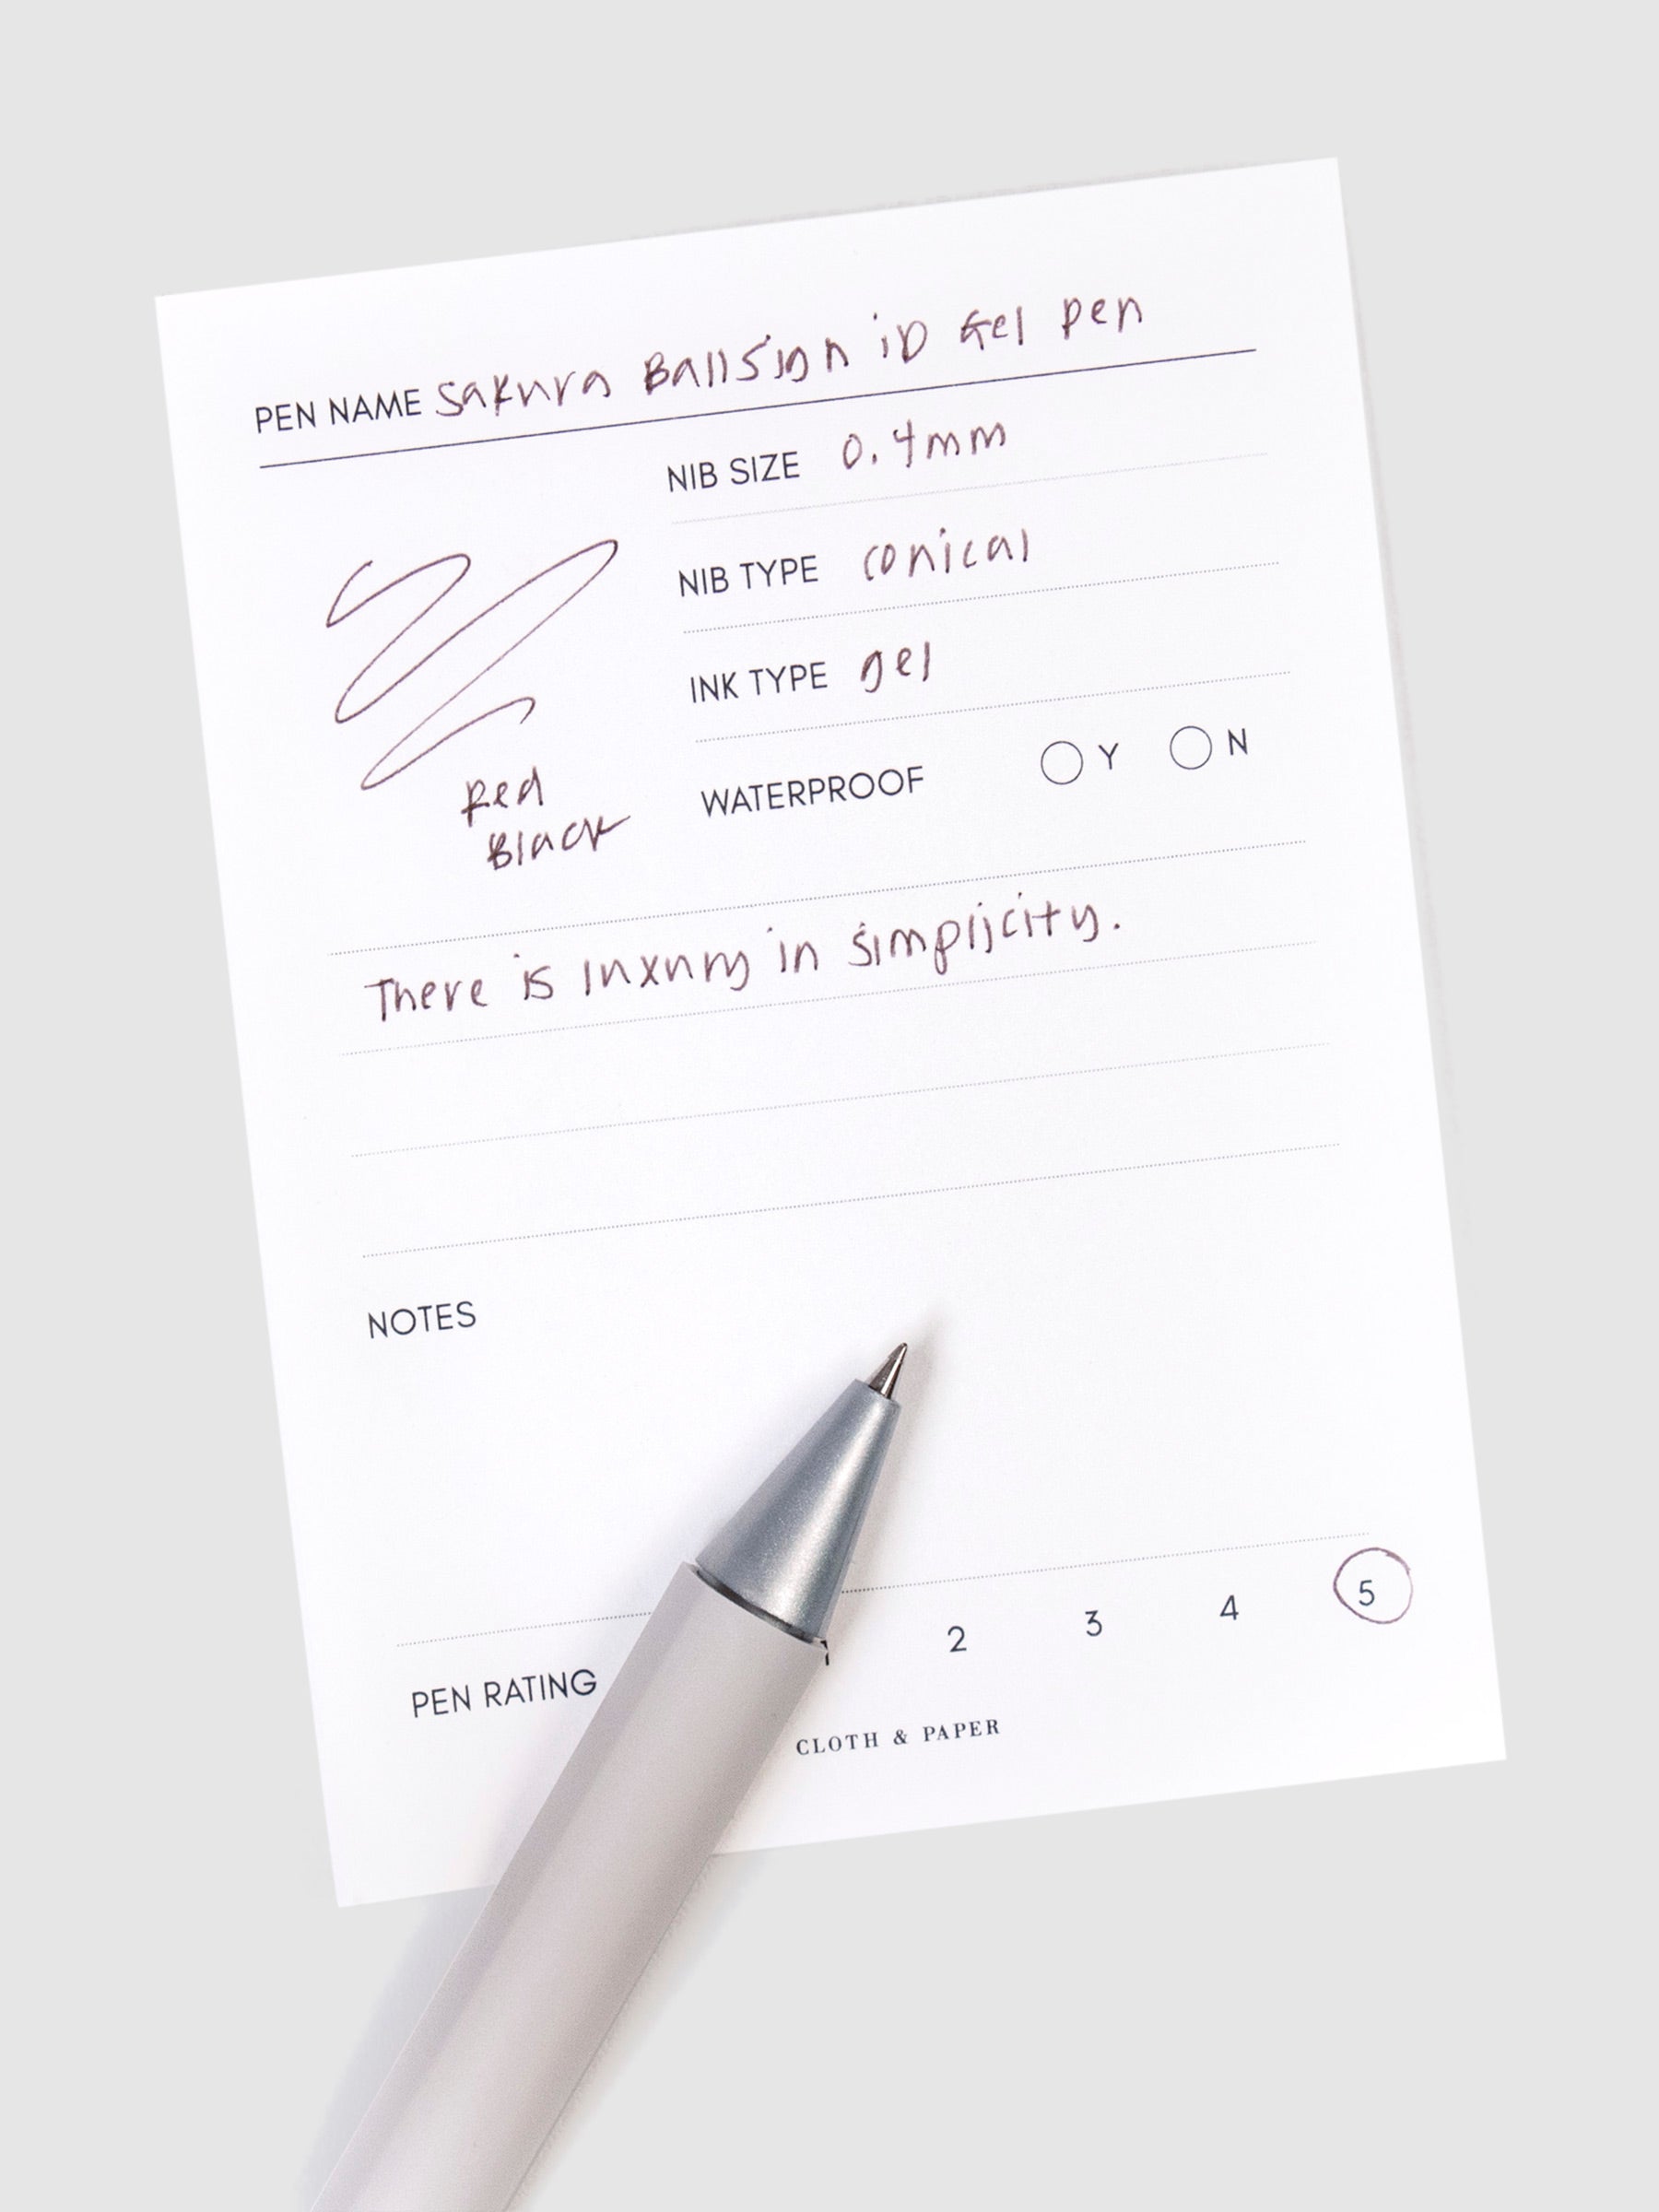 PEN NAME Sakura Ballsign iD Gel Pen
NIB SIZE 0.4mm
NIB TYPE conical
INK TYPE gel
WATERPROOF Y N
Red
Black
There is luxury in simplicity.
NOTES
PEN RATING 1 2 3 4 5
CLOTH & PAPER